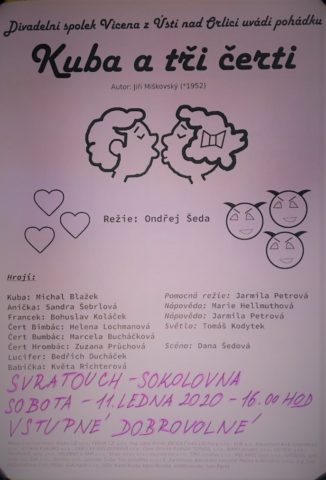 Divadelní spolek Vicena z Ústí nad Orlicí uvádí pohádku
Kuba a tři čerti
Autor: Jiří Miškovský (*1952)
Režie: Ondřej Šeda
Hrají:
Kuba: Michal Blažek
Anička: Sandra Šebrlová
Francek: Bohuslav Koláček
Čert Bimbác: Helena Lochmanová
Čert Bumbác: Marcela Bucháčková
Čert Hrombác: Zuzana Průchová
Lucifer: Bedřich Ducháček
Babička: Květa Richterová
Pomocná režie: Jarmila Petrová
Nápověda: Marie Hellmuthová
Nápověda: Jarmila Petrová
Světlo: Tomáš Kodytek
Scéna: Dana Šedová
SVRATOUCH - SOKOLOVNA
SOBOTA - 11. LEDNA 2020 - 16.00 HOD
VSTUPNÉ DOBROVOLNÉ